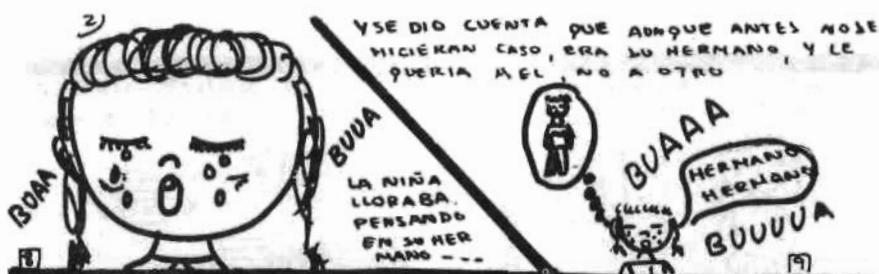 2)
BUAA
BUUA
LA NIÑA
LLORABA.
PENSANDO
EN SU HER
MANO ---
8
Y SE DIO CUENTA QUE AUNQUE ANTES NO SE
HICIERAN CASO, ERA SU HERMANO, Y LE
QUERIA A EL, NO A OTRO
BUAAA
HERMANO
HERMANO
BUUUUA
9